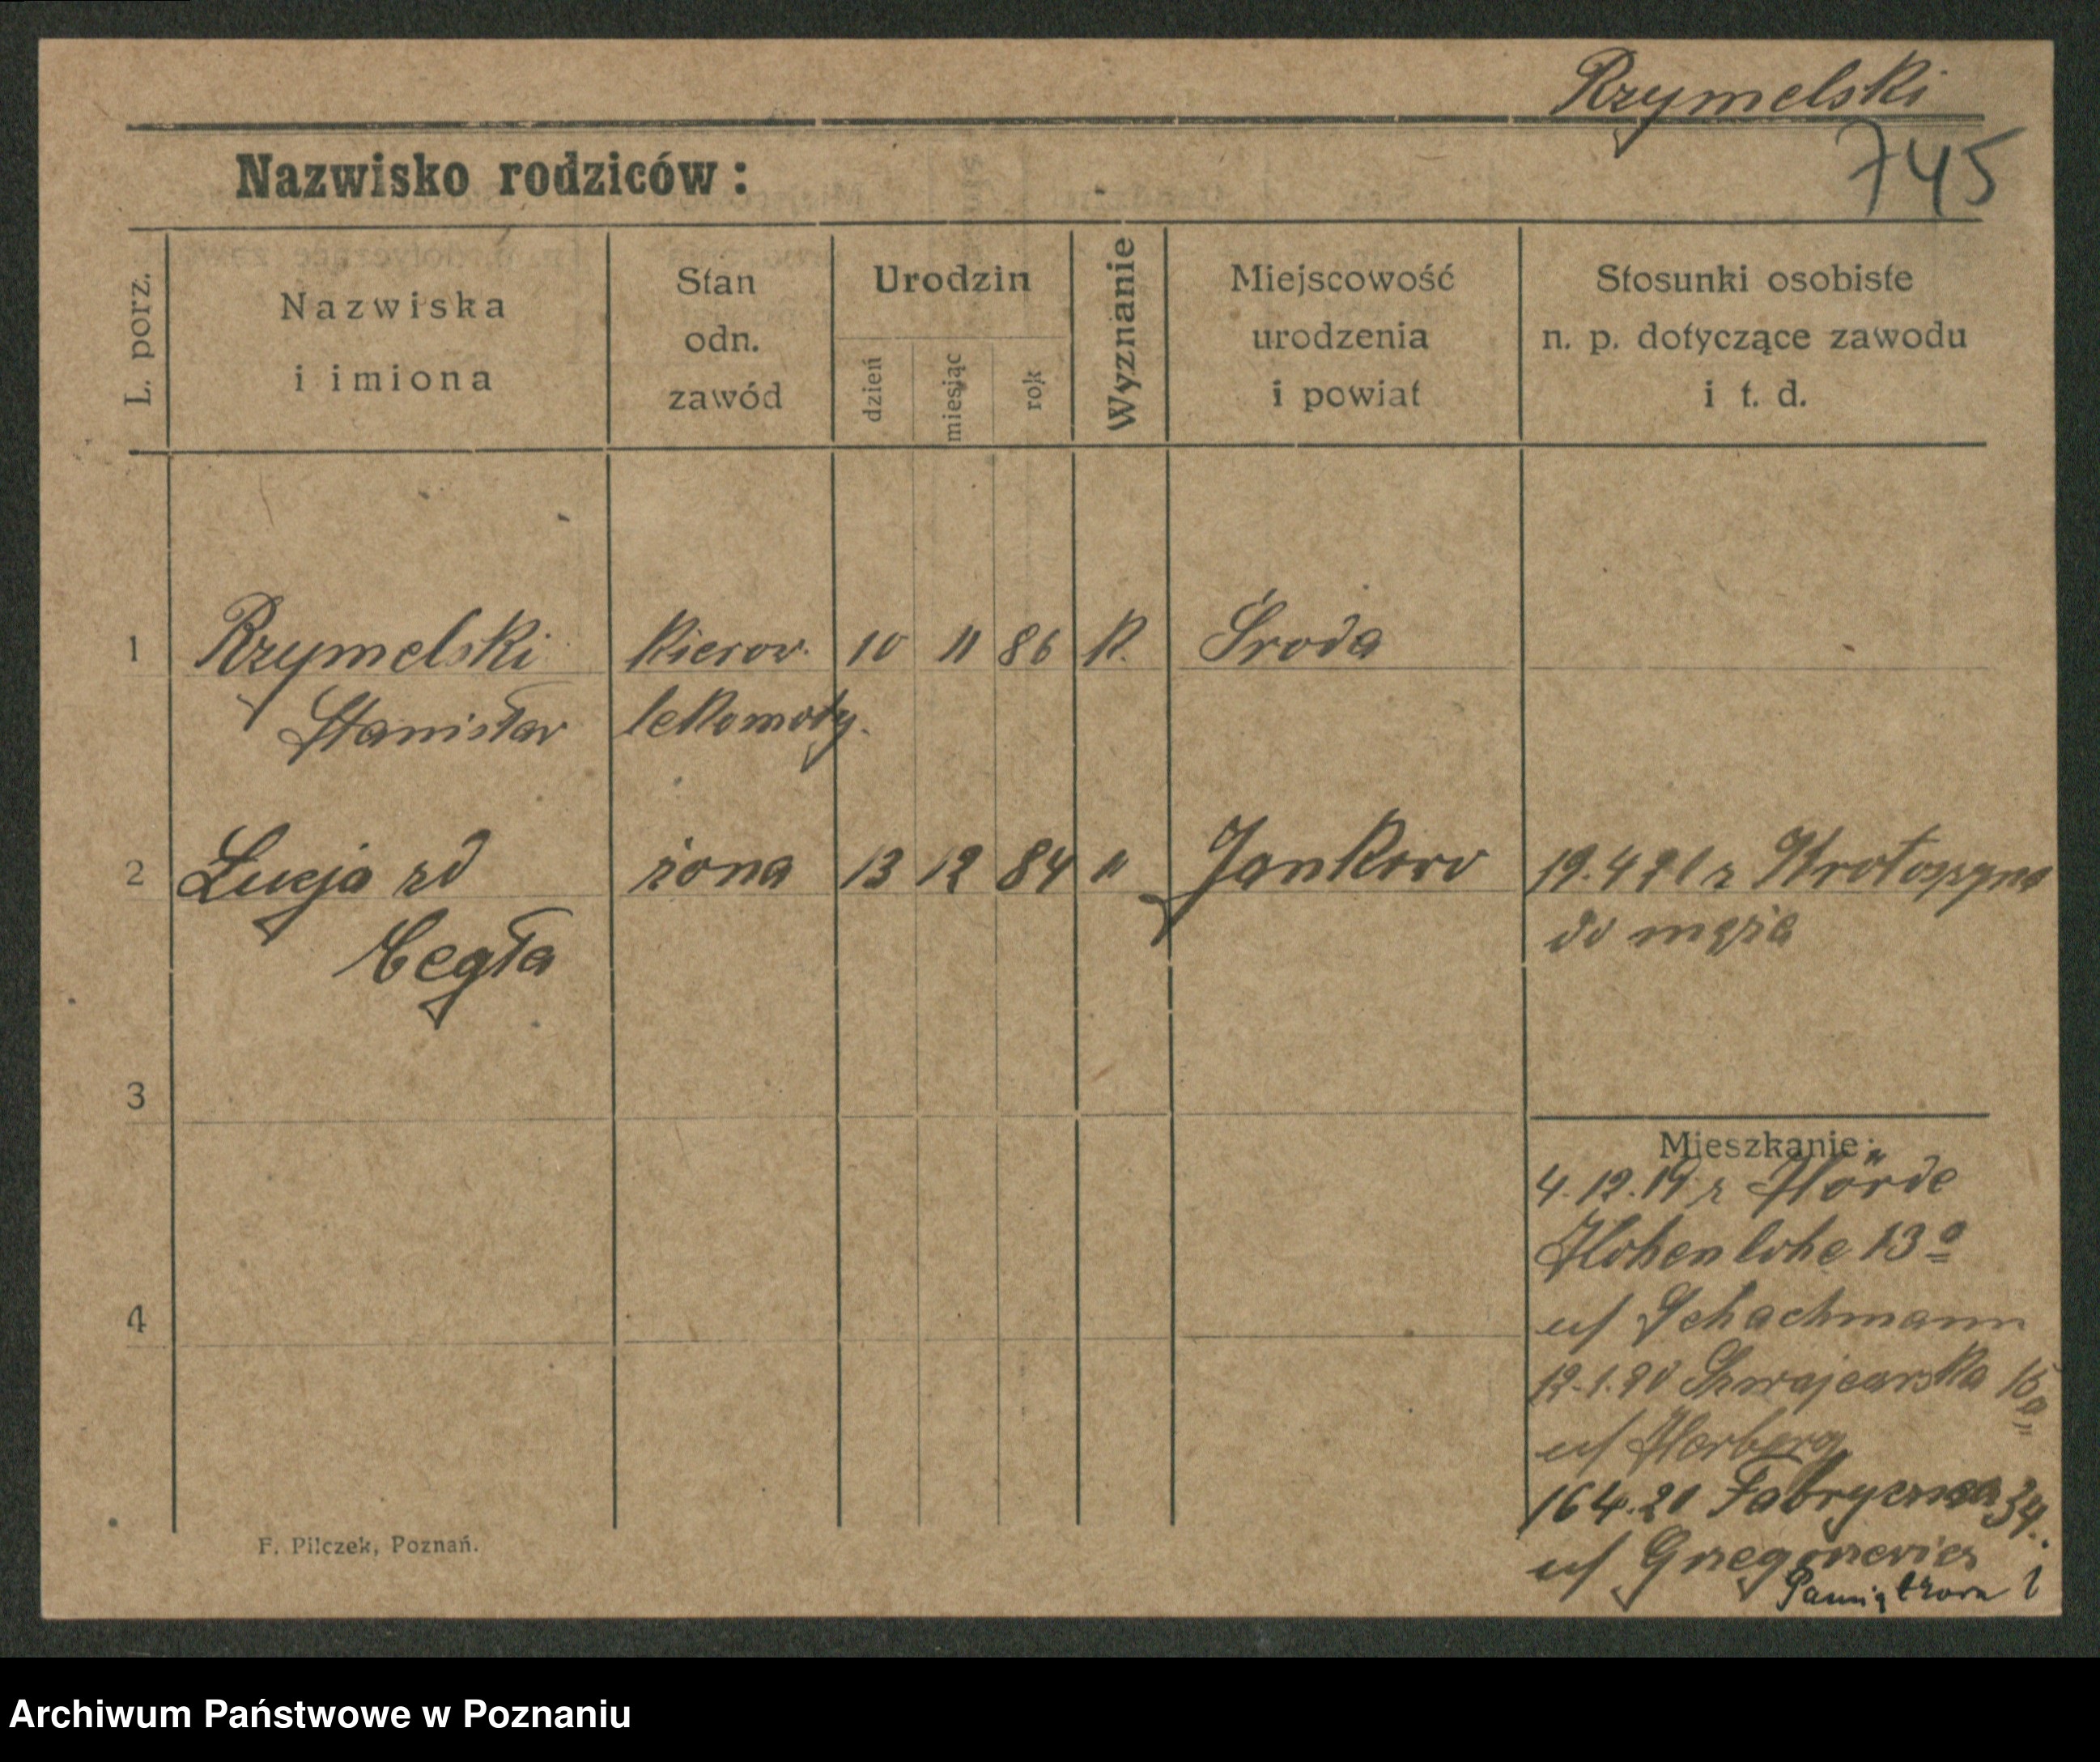 Rzymelski
745
Nazwisko rodziców:
L. porz.
Nazwiska
i imiona
Stan
odn.
zawód
Urodzin
dzień
miesiąc
rok
Wyznanie
Miejscowość
urodzenia
i powiat
Stosunki osobiste
n. p. dotyczące zawodu
i t. d.
1 Rzymelski kierow. 10 11 86 k. Środa
Stanisław lokomoty.
2 Łucja zd żona 13 12 84 " Jankowo 19.4 21 z Krotoszyna
Cegła do męża
3
4
Mieszkanie:
4.12.19 z Hörde
Hohenlohe 13a
u/ Schachmann
12.1.20 Szwajcarska 16a
u/ Herberg
16 4.20 Fabryczna 34.
u/ Grzegorzewicz
Pamiątkowa 1
F. Pilczek, Poznań.
Archiwum Państwowe w Poznaniu